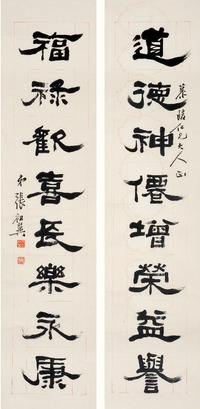 道德神僊增榮益譽
仁兄大人正
福祿歡喜長樂永康
弟張祖翼